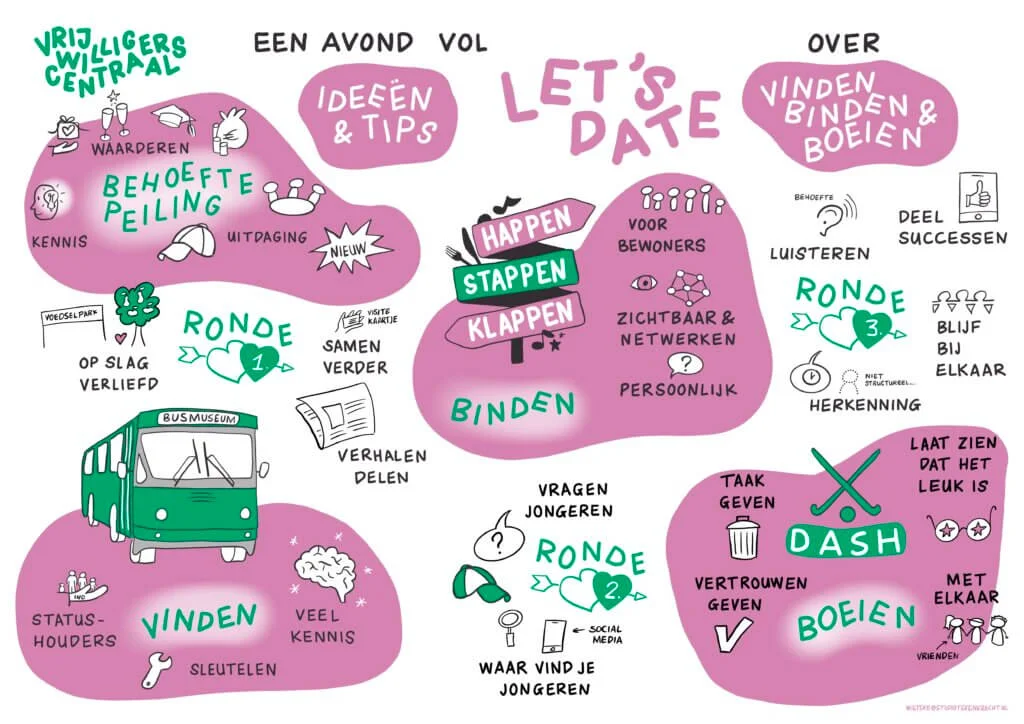 VRIJ
WILLIGERS
CENTRAAL
EEN AVOND VOL
IDEEËN
& TIPS
LET'S
DATE
OVER
VINDEN
BINDEN &
BOEIEN
WAARDEREN
BEHOEFTE
PEILING
KENNIS
UITDAGING
NIEUW
VOEDSELPARK
OP SLAG
VERLIEFD
RONDE
1.
VISITE
KAARTJE
SAMEN
VERDER
VERHALEN
DELEN
BUSMUSEUM
STATUS-
HOUDERS
IND
VINDEN
VEEL
KENNIS
SLEUTELEN
HAPPEN
STAPPEN
KLAPPEN
VOOR
BEWONERS
ZICHTBAAR &
NETWERKEN
?
PERSOONLIJK
BINDEN
VRAGEN
JONGEREN
?
RONDE
2.
← SOCIAL
MEDIA
WAAR VIND JE
JONGEREN
BEHOEFTE
LUISTEREN
DEEL
SUCCESSEN
RONDE
3.
BLIJF
BIJ
ELKAAR
NIET
STRUCTUREEL...
HERKENNING
TAAK
GEVEN
DASH
LAAT ZIEN
DAT HET
LEUK IS
VERTROUWEN
GEVEN
BOEIEN
MET
ELKAAR
VRIENDEN